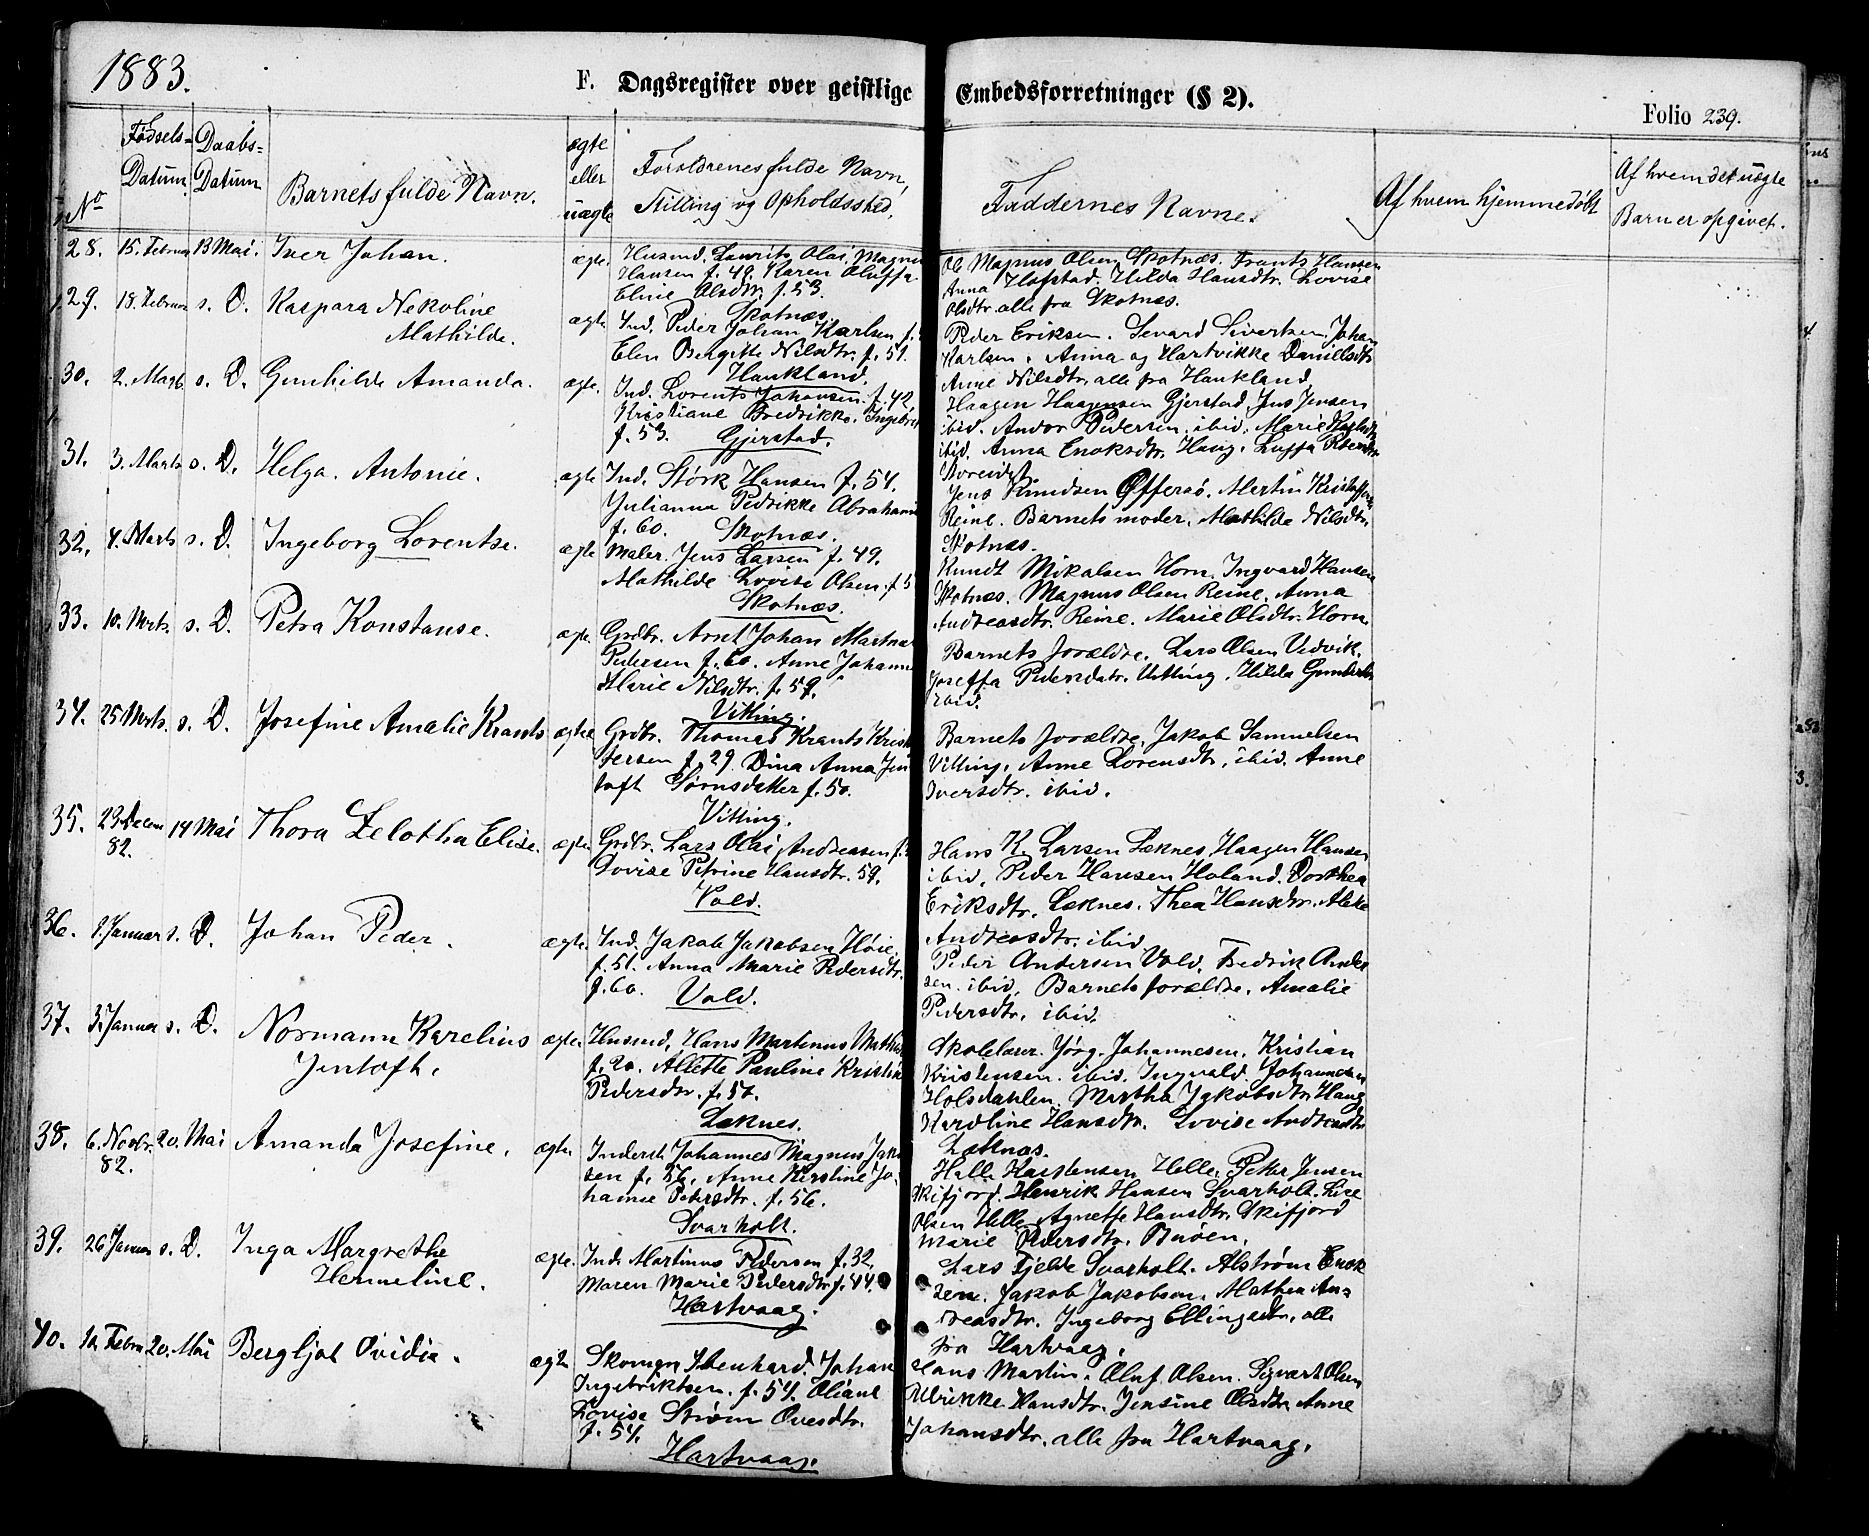 1883.
F. Dagsregister over geistlige Embedsforretninger (§ 2).
Folio 239.
No
Fødsels-
Datum
Daabs-
Datum
Barnets fulde Navn.
ægte
eller
uægte
Forældrenes fulde Navn,
Stilling og Opholdssted.
Faddernes Navne.
Af hvem hjemmedøbt
Af hvem det uægte
Barn er opgivet.
28. 15. Februar 13 Mai. Iver Johan. ægte.
Husmd. Laurits Olai Magnus
Hansen f. 49. Karen Oluffa
Eline Olsdtr. f. 53.
Skotnæs.
Ole Magnus Olsen Skotnæs. Frants Hansen
Anna Hofstad. Hilda Hansdtr. Lovise
Olsdtr. alle fra Skotnæs.
29. 18. Februar s. D. Kaspara Nekoline
Mathilde.
ægte
Ind. Peder Johan Karlsen f.
Elen Bergitte Nilsdtr. f. 51.
Haukland.
Peder Eriksen. Sevard Sivertsen, Johan
Karlsen. Anna og Hartvikke Danielsdtr
Anne Nilsdtr. alle fra Haukland.
30. 2. Marts s. D. Gunhilde Amanda. ægte.
Ind. Lorents Johansen. f. 42
Kristiane Fredrikke Ingebr
f. 53. Gjerstad.
Haagen Haagensen Gjerstad, Jens Jensen
ibid. Andor Pedersen. ibid. Marie
ibid. Anna Enoksdtr. Haug. Luffa
31. 3. Marts s. D. Helga. Antonie. ægte
Ind. Størk Hansen f. 54.
Julianna Pedrikke Abraham
f. 60. Skotnæs.
Jens Knudsen Offersø. Martin Kristoffers
Reine. Barnets moder. Mathilde Nilsdtr.
Skotnæs.
32. 4. Marts s. D. Ingeborg Lorentse. ægte
Maler. Jens Larsen f. 49.
Mathilde Lovise Olsen. f 5
Skotnæs.
Knudt Mikalsen Horn. Ingvard Hansen
Skotnæs. Magnus Olsen Reine. Anna
Andreasdtr. Reine. Marie Olsdtr. Horn.
33. 10. Marts. s. D. Petra Konstanse. ægte.
Grdbr. Arnt Johan Martnas
Pedersen f. 60. Anne Johanna
Marie Nilsdtr. f. 59.
Vitting.
Barnets forældre. Lars Olsen Vedvik.
Joseffa Pedersdatr. Vitting. Hilda
ibid.
34. 25 Marts. s. D. Josefine Amalie Krants ægte
Grdbr. Thomas Krants Krist
fersen f. 29. Dina Anna Jen
toft Sørnsdatter f. 50.
Vitting.
Barnets forældre, Jakob Samuelsen
Vitting. Anne Lorensdtr, ibid. Anne
Iversdtr. ibid.
35. 23 Decem
82.
14 Mai Thora Zelotha Elise. ægte
Grdbr. Lars Olai Andreasen f.
Lovise Petrine Hansdtr. 59.
Vold.
Hans K. Larsen Leknes, Haagen Hansen
ibid. Peder Hansen Holand. Dorthea
Eriksdtr. Leknes. Thea Hansdtr.
Andreasdtr. ibid
36. 1. Januar s. D. Johan Peder. ægte.
Ind. Jakob Jakobsen Høie
f. 51. Anna Marie Pedersdtr.
f. 60. Vold.
Peder Andersen Vold. Fredrik Ander
sen. ibid. Barnets forældre. Amalie
Pedersdtr. ibid.
37. 3. Januar s. D. Normann Karelius
Jentoft.
ægte.
Husmd. Hans Martinus Mathis
f. 20. Allette Pauline Kristin
Pedersdtr. f. 57.
Leknes.
Skolelærer. Jørg. Johannesen. Kristian
Kristensen. ibid. Ingvald. Johannesen
Holsdahlen. Martha Jakobsdtr. Haug
Karoline Hansdtr. Lovise Andreasdtr
Leknes.
38. 6. Novbr.
82.
20. Mai Amanda Josefine. ægte.
Inderst. Johannes Magnus Jak
sen f. 56. Anne Kirstine Jo-
hanne Petersdtr. f. 56.
Svarholt.
Halle Karstensen Helle. Peter Jensen
Skifjord. Henrik Hansen Svarholt. Lise
Olsen Helle. Agnette Hansdtr. Skifjord
Marie Pedersdtr. Buøen.
39. 26 Januar s. D. Inga Margrethe
Henneline.
ægte.
Ind. Martinus Pedersen f. 32.
Maren Marie Pedersdtr. f. 44.
Hartvaag.
Lars Fjelde Svarholt. Alstrøm Enok
sen. Jakob Jakobsen. Mathea An-
dreasdtr. Ingeborg Ellingsdtr, alle
fra Hartvaag.
40. 14 Febru 20. Mai Bergljot Ovidia. ægte
Skomgr Johan
Ingebriktsen. f. 54. Oliane
Lovise Strøm Ovesdtr.
f. 54.
Hartvaag.
Hans Martin. Oluf Olsen. Sigvart Olsen
Ulrikke Hansdtr. Jensine Olsdtr. Anne
Johansdtr. alle fra Hartvaag.